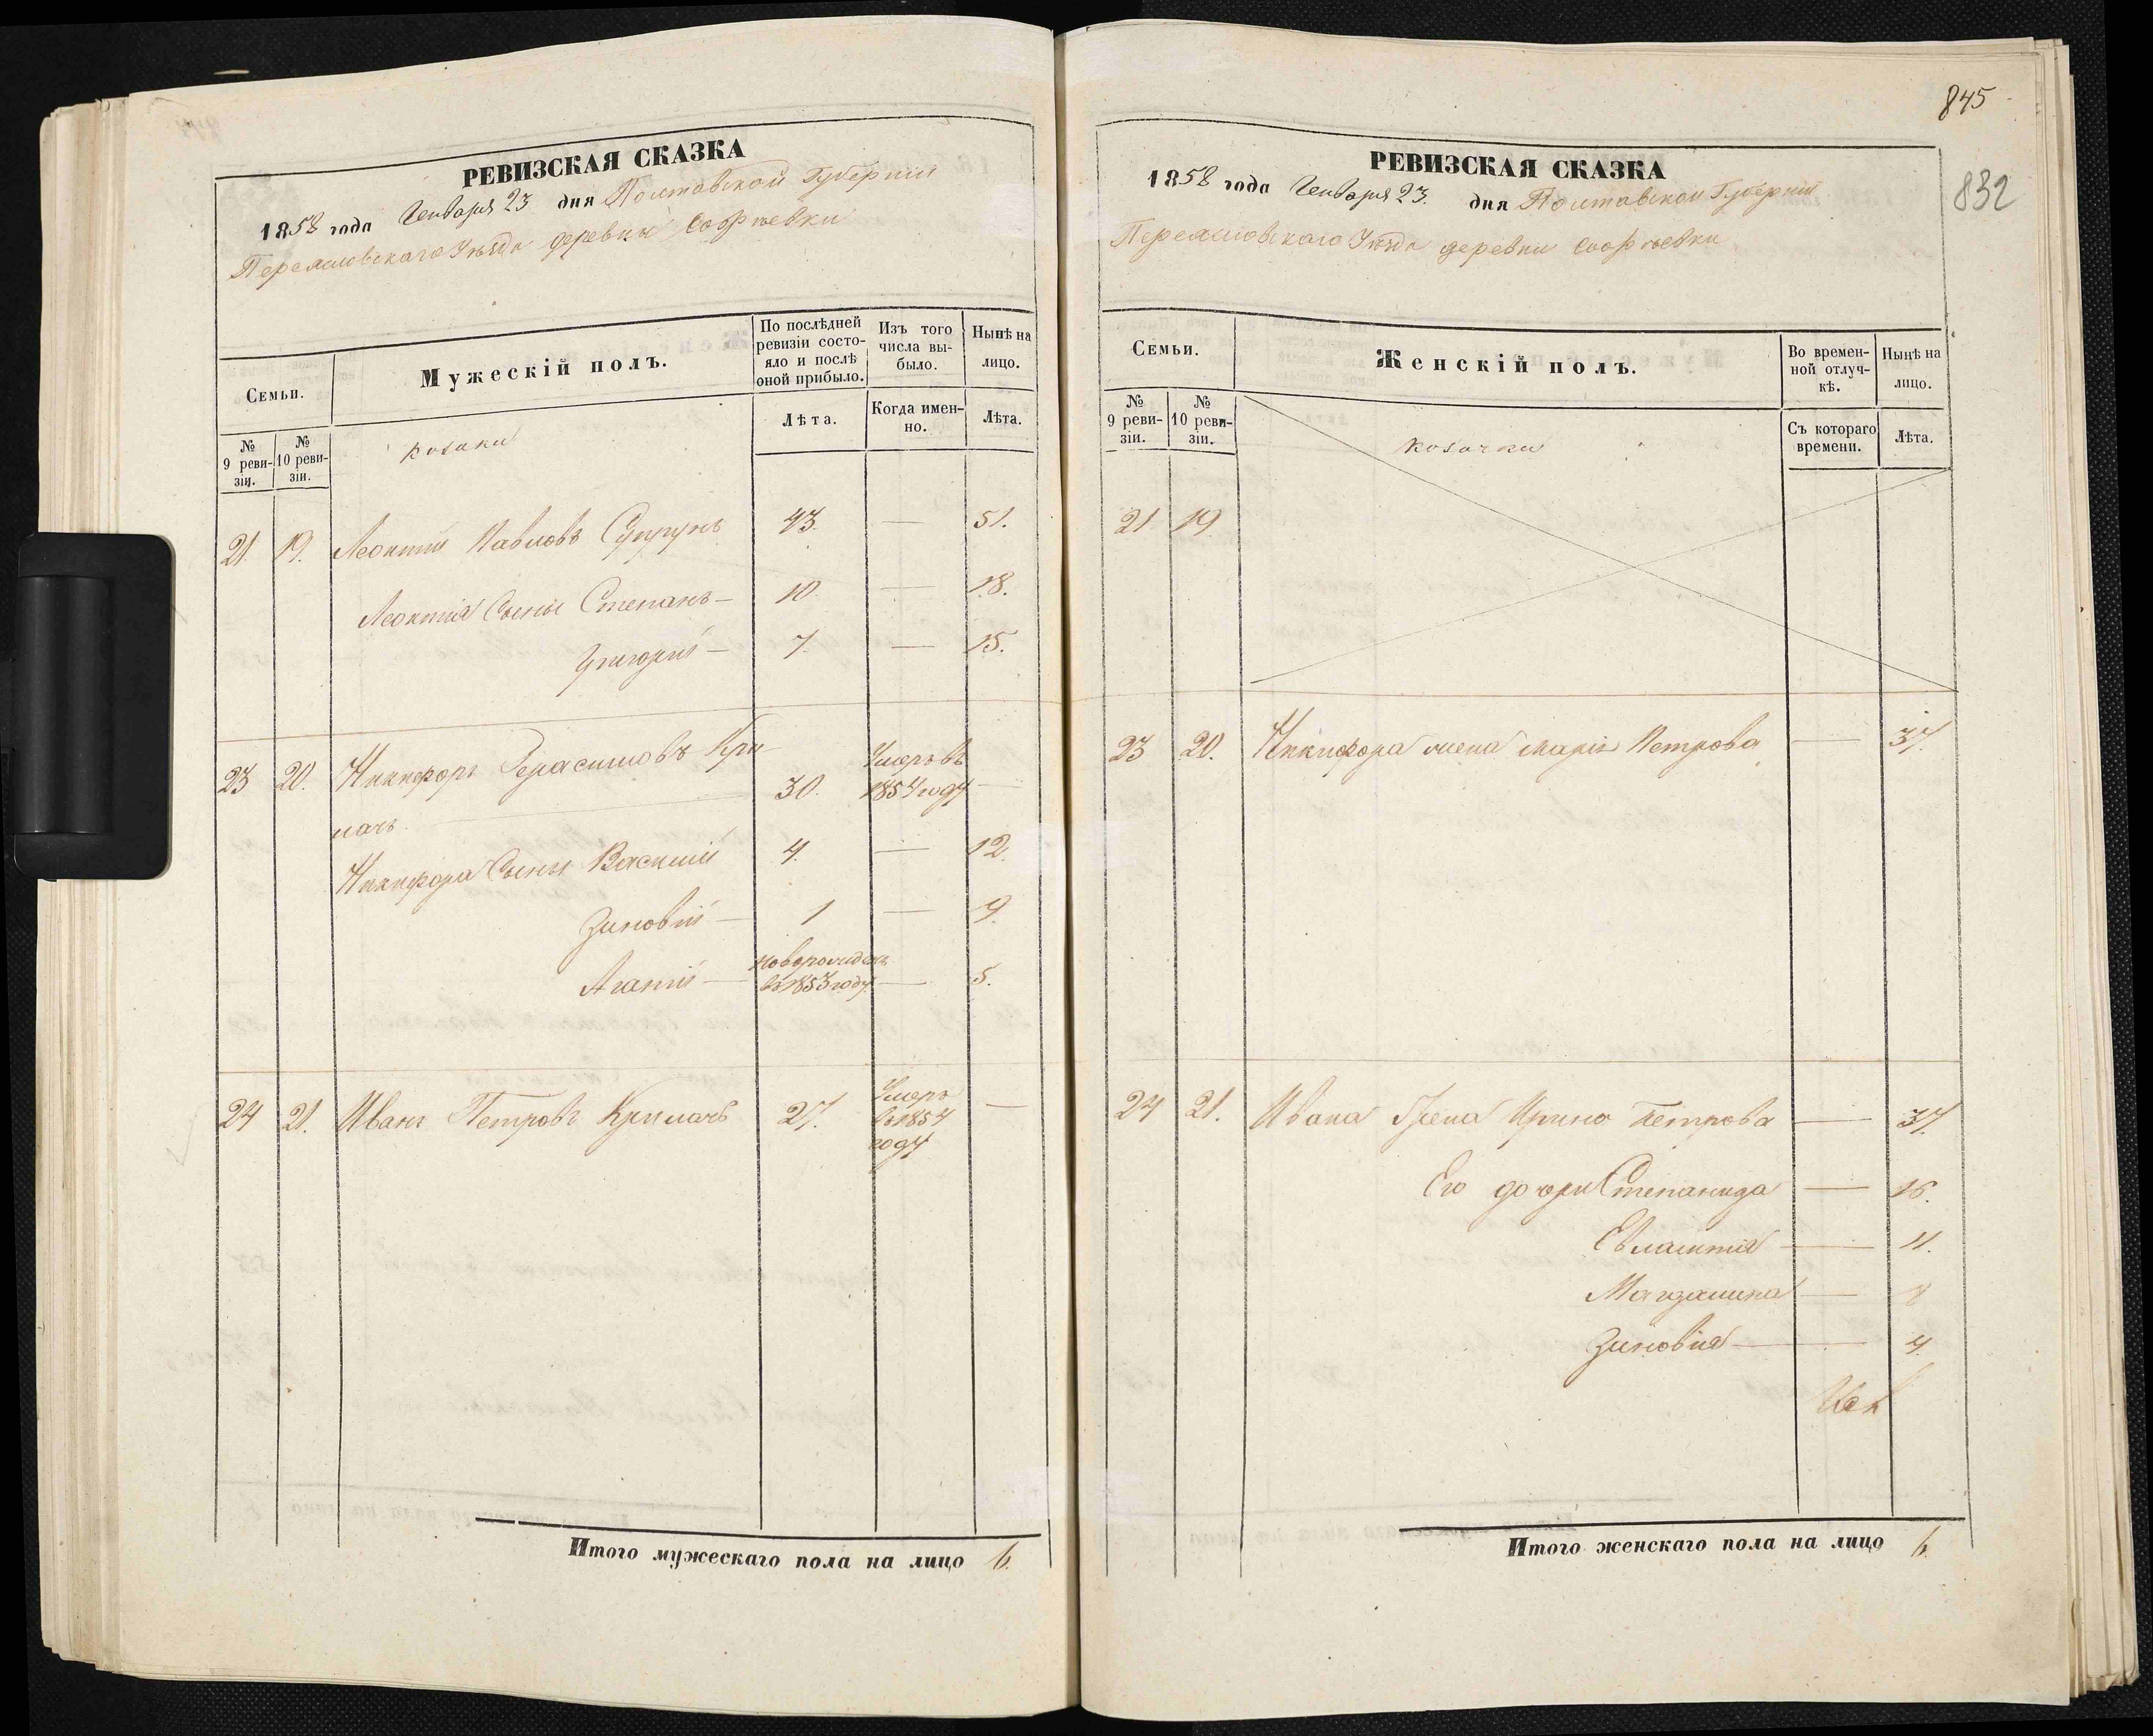 РЕВИЗСКАЯ СКАЗКА
1858 года Генваря 23 дня Полтавской Губерніи
Переясловскаго Уѣзда деревни Софіевки
Семьи.
Мужескій полъ.
По послѣдней ревизіи состояло и послѣ оной прибыло.
Изъ того числа выбыло.
Нынѣ на лицо.
№ 9 ревизіи.
№ 10 ревизіи.
козаки
Лѣта.
Когда именно.
Лѣта.
21. 19. Леонтій Павловъ Супрунъ 43. — 51.
Леонтія Сыны Степанъ — 10. — 18.
Григорій — 7. — 15.
23 20. Никифоръ Герасимовъ Кри-
мачъ. 30. Умеръ въ 1854 году —
Никифора Сыны Василій 4. — 12.
Зиновій — 1 — 9.
Агапій — новорожденъ въ 1853 году. — 5.
24 21. Иванъ Петровъ Кримачъ 27. Умеръ въ 1854 году —
Итого мужескаго пола на лицо 6.
845
832
РЕВИЗСКАЯ СКАЗКА
1858 года Генваря 23. дня Полтавской Губерніи
Переясловскаго Уѣзда деревни Софіевки
Семьи.
Женскій полъ.
Во временной отлучкѣ.
Нынѣ на лицо.
№ 9 ревизіи.
№ 10 ревизіи.
козачки
Съ котораго времени.
Лѣта.
21 19
23 20. Никифора жена Марія Петрова — 37.
24 21. Ивана Жена Ирина Петрова — 37.
Его дочери Степанида — 16.
Евлампія — 11.
Магдалина — 8
Зиновія — 4.
Итого женскаго пола на лицо 6.